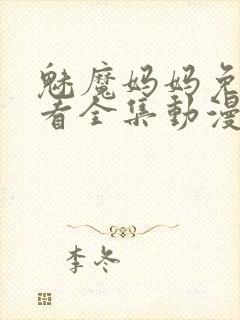 魅魔妈妈免
看全集動漫
李冬